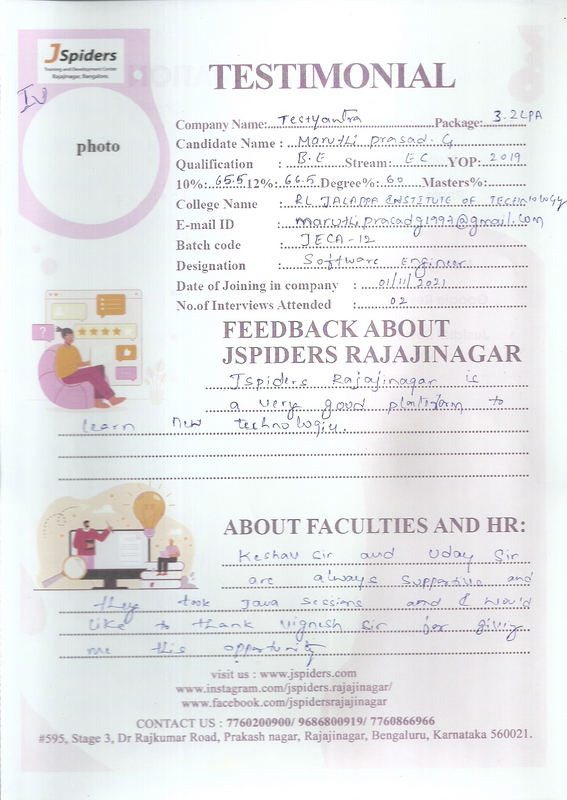 JSpiders
Training and Development Center
Rajajinagar, Bangalore.
TESTIMONIAL
IV
photo
Company Name: Testyantra Package: 3.2LPA
Candidate Name : Maruthi prasad. G
Qualification : B.E Stream: EC YOP: 2019
10%: 65.5 12%: 66.5 Degree%: 60 Masters%:
College Name : RL JALAPPA INSTITUTE OF TECHNOLOGY
E-mail ID : maruthiprasadg1997@gmail.com
Batch code : JECA-12
Designation : Software Engineer
Date of Joining in company : 01/11/2021
No.of Interviews Attended : 02
FEEDBACK ABOUT
JSPIDERS RAJAJINAGAR
Jspiders Rajajinagar is
a very good platform to
learn new technologie.
ABOUT FACULTIES AND HR:
Keshav Sir and Uday Sir
are always supportive and
they took Java sessions and I would
like to thank vignesh sir for giving
me this opportunity
visit us : www.jspiders.com
www.instagram.com/jspiders.rajajinagar/
www.facebook.com/jspidersrajajinagar
CONTACT US : 7760200900/ 9686800919/ 7760866966
#595, Stage 3, Dr Rajkumar Road, Prakash nagar, Rajajinagar, Bengaluru, Karnataka 560021.